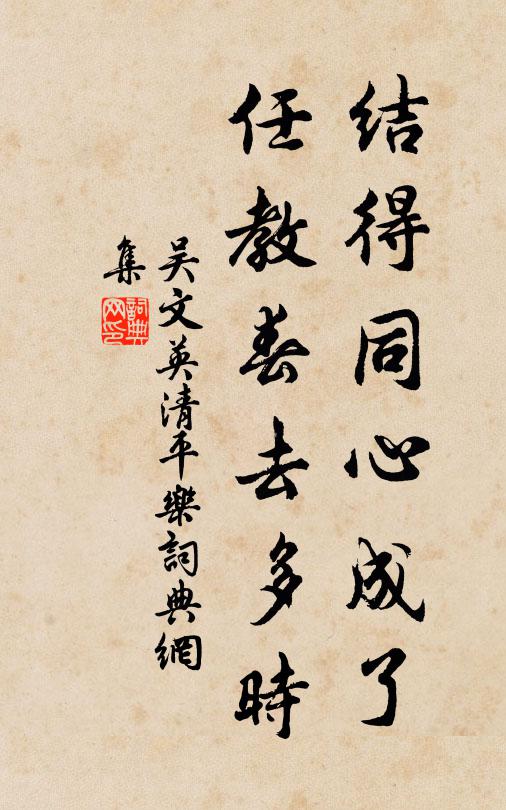 结得同心成了
任教春去多時
吴文英清平樂詞典網
集
詞典
网印